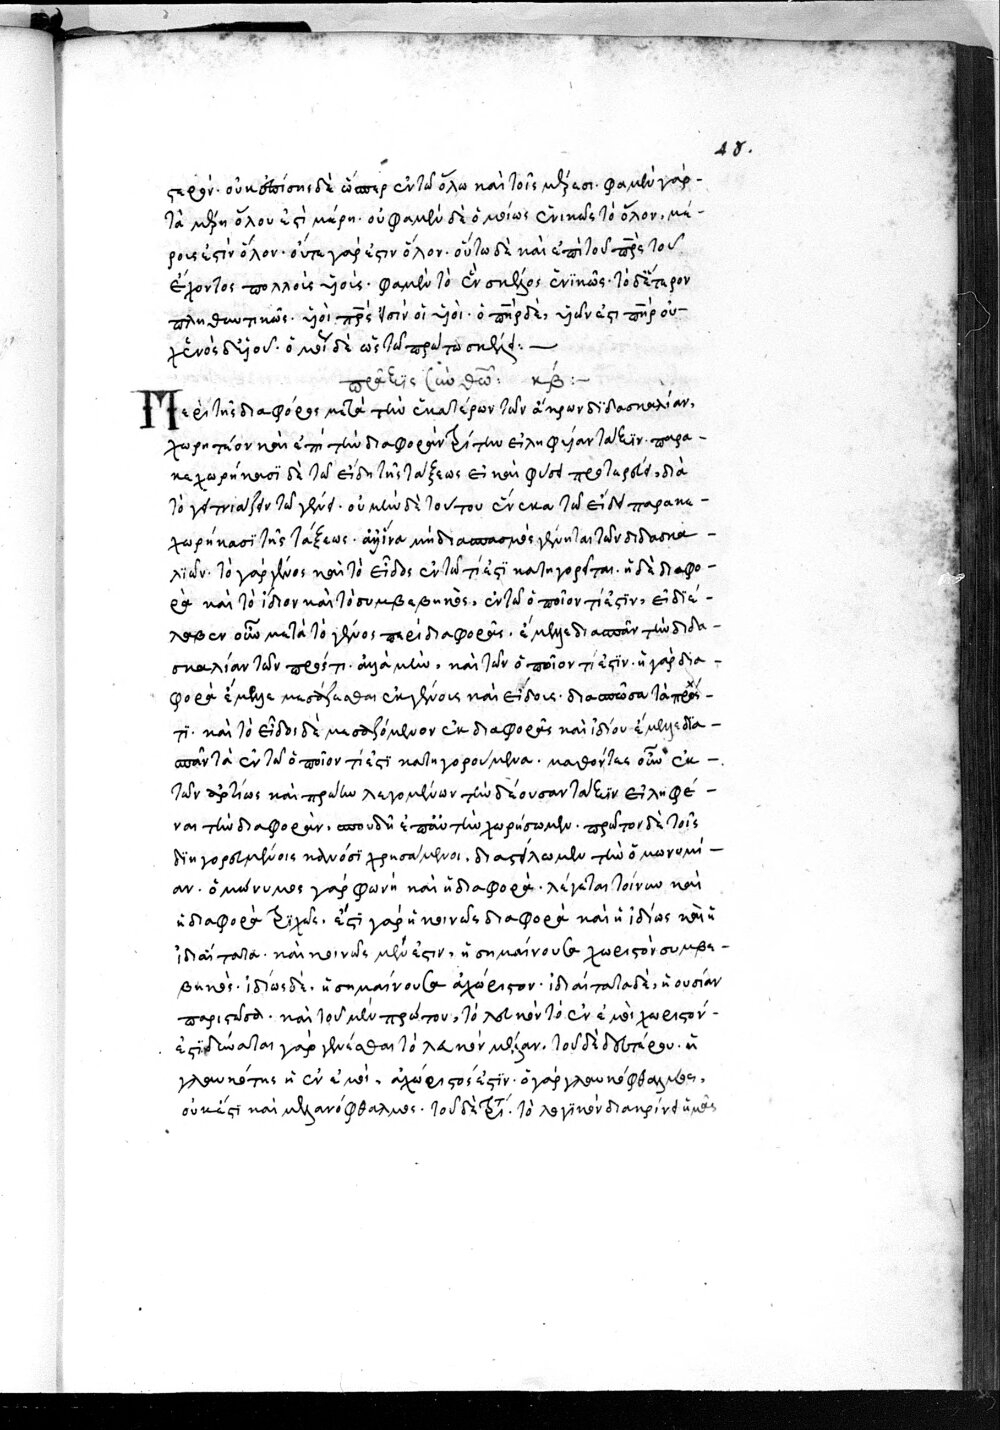 48.
στερόν· οὐκ ἐπίσης δὲ ὥσπερ ἐν τῷ ὅλῳ καὶ τοῖς μέρεσι· φαμὲν γὰρ
τὰ μέρη ὅλου ἐστὶ μέρη· οὐ φαμὲν δὲ ὁμοίως ἑνικῶς τὸ ὅλον, μέ-
ρους ἐστὶν ὅλον· οὔτε γάρ ἐστιν ὅλον· οὕτω δὲ καὶ ἐπὶ τοῦ πρς τοῦ
ἔχοντος πολλοὺς υἱούς· φαμὲν τὸ ἓν σκέλος ἑνικῶς· τὸ δεύτερον
πληθυντικῶς· υἱοὶ πρς εἰσὶν οἱ υἱοί· ὁ πηρ δέ, υἱῶν ἐστι πηρ οὐ-
χ ἑνὸς δὲ υἱοῦ· ὁ δὲ ὡς τῷ πρώτῳ σκέλει:—
πρᾶξις σὺν θεῷ: κβ:—
Περὶ τῆς διαφορᾶς μετὰ τὴν ἑκατέρων τῶν ἄκρων διδασκαλίαν,
χωρητέον καὶ ἐπὶ τὴν διαφορὰν τρίτην εἰληφυῖαν τάξιν· παρα-
κεχωρήκασι δὲ τῷ εἴδει τῆς τάξεως εἰ καὶ φύσει προτερεύει, διὰ
τὸ γειτνιάζειν τῷ γένει· οὐ μὴν δὲ τούτου ἕνεκα τῷ εἴδει παρακε-
χωρήκασι τῆς τάξεως· ἀλλ' ἵνα μὴ διασπασμὸς γένηται τῶν διδασκα-
λιῶν· τὸ γὰρ γένος καὶ τὸ εἶδος ἐν τῷ τί ἐστι κατηγορεῖται· ἡ δὲ διαφο-
ρὰ καὶ τὸ ἴδιον καὶ τὸ συμβεβηκός, ἐν τῷ ὁποῖον τί ἐστιν, εἰ διέ-
λαβεν οὖν μετὰ τὸ γένος περὶ διαφορᾶς, ἔμελλε διασπᾶν τὴν διδα-
σκαλίαν τῶν πρός τι· ἀλλὰ μὴν, καὶ τῶν ὁποῖον τί ἐστιν· ἡ γὰρ δια-
φορὰ ἔμελλε μεσάζεσθαι ἐκ γένους καὶ εἴδους· διασπῶσα τὰ πρός
τι· καὶ τὸ εἶδος δὲ μεσαζόμενον ἐκ διαφορᾶς καὶ ἰδίου ἔμελλε δια-
σπᾶν τὰ ἐν τῷ ὁποῖον τί ἐστι κατηγορούμενα· μαθόντες οὖν ἐκ
τῶν ἀρτίως καὶ πρώην λεγομένων τὴν δέουσαν τάξιν εἰληφέ-
ναι τὴν διαφοράν, σπουδῇ ἐπ' αὐτὴν χωρήσωμεν· πρῶτον δὲ τοῖς
διηγορευμένοις κανόσι χρησάμενοι, διαστείλωμεν τὴν ὁμωνυμί-
αν· ὁμώνυμος γὰρ φωνὴ καὶ ἡ διαφορά· λέγεται τοίνυν καὶ
ἡ διαφορὰ τριχῶς· ἔστι γὰρ ἡ κοινῶς διαφορὰ καὶ ἡ ἰδίως καὶ ἡ
ἰδιαίτατα· καὶ κοινῶς μέν ἐστιν, ἡ σημαίνουσα χωριστὸν συμβε-
βηκός· ἰδίως δὲ, ἡ σημαίνουσα ἀχώριστον· ἰδιαίτατα δὲ, ἡ οὐσίαν
παριστῶσα· καὶ τοῦ μὲν πρώτου, τὸ λευκὸν τὸ ἐν ἐμοὶ χωριστόν
ἐστι δύναται γὰρ γενέσθαι τὸ λευκὸν μέλαν· τοῦ δὲ δευτέρου· ἡ
γλαυκότης ἡ ἐν ἐμοί, ἀχώριστός ἐστιν· ὁ γὰρ γλαυκόφθαλμος,
οὐκέτι καὶ μελανόφθαλμος· τοῦ δὲ τρίτ· τὸ λογικὸν διακρίνει ἡμᾶς